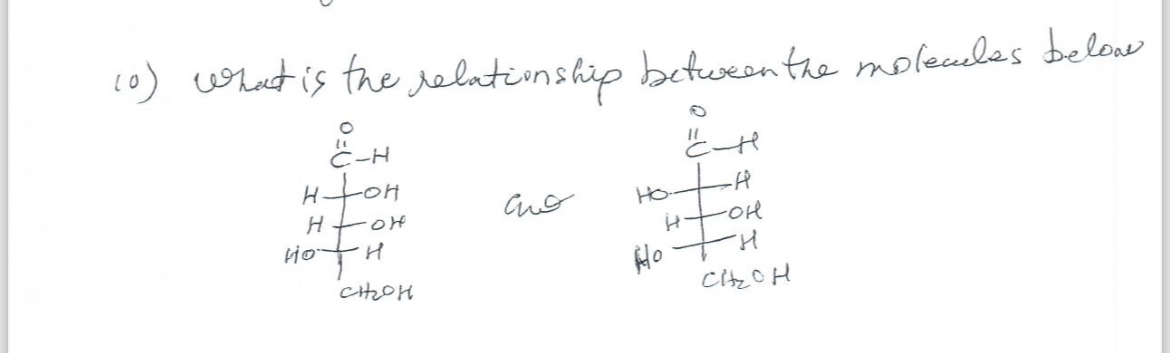 10) what is the relationship between the molecules below
O
O
C-H
C-H
H OH
HO H
and
H OH
H OH
HO H
HO H
CH2OH
CH2OH